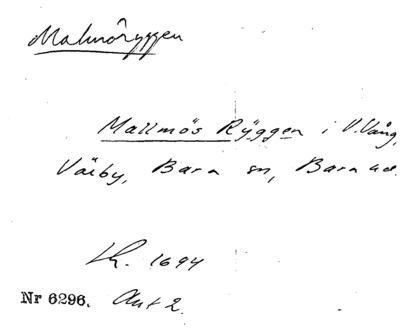 Malmöryggen
Mallmös Ryggen i V. Vång,
Bara sn, Bara hd.
Lk. 1694
Nr 6296. Akt 2.